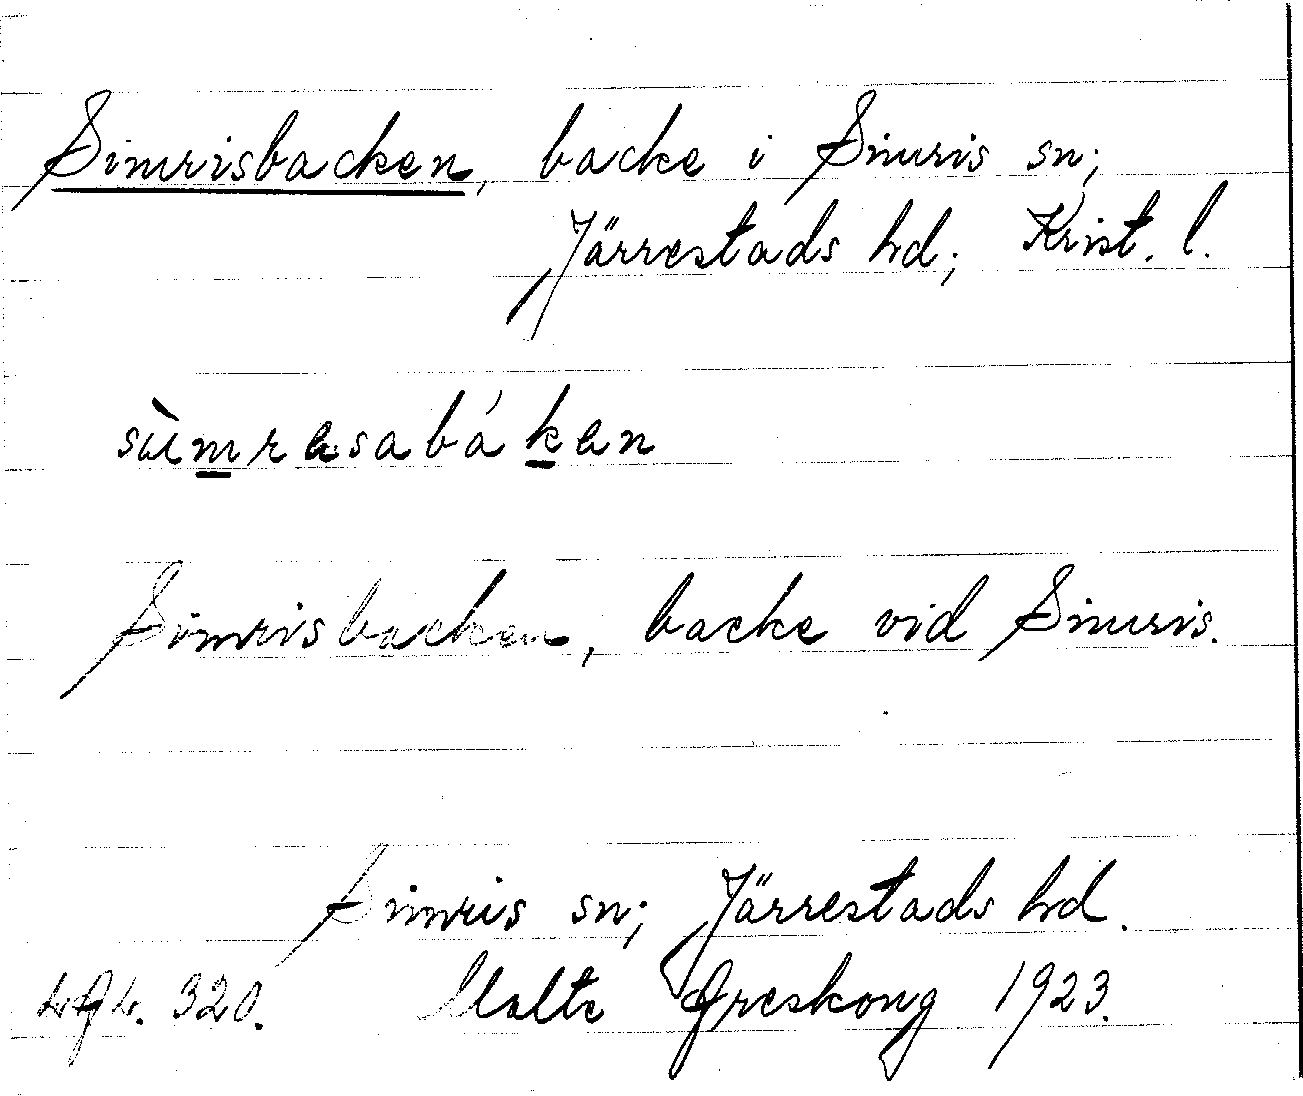 Simrisbacken, backe i Simris sn;
Järrestads hd; Krist. l.
sìmrɐsabákan
Simrisbacken, backe vid Simris.
Simris sn; Järrestads hd.
320. Malte Areskoug 1923.